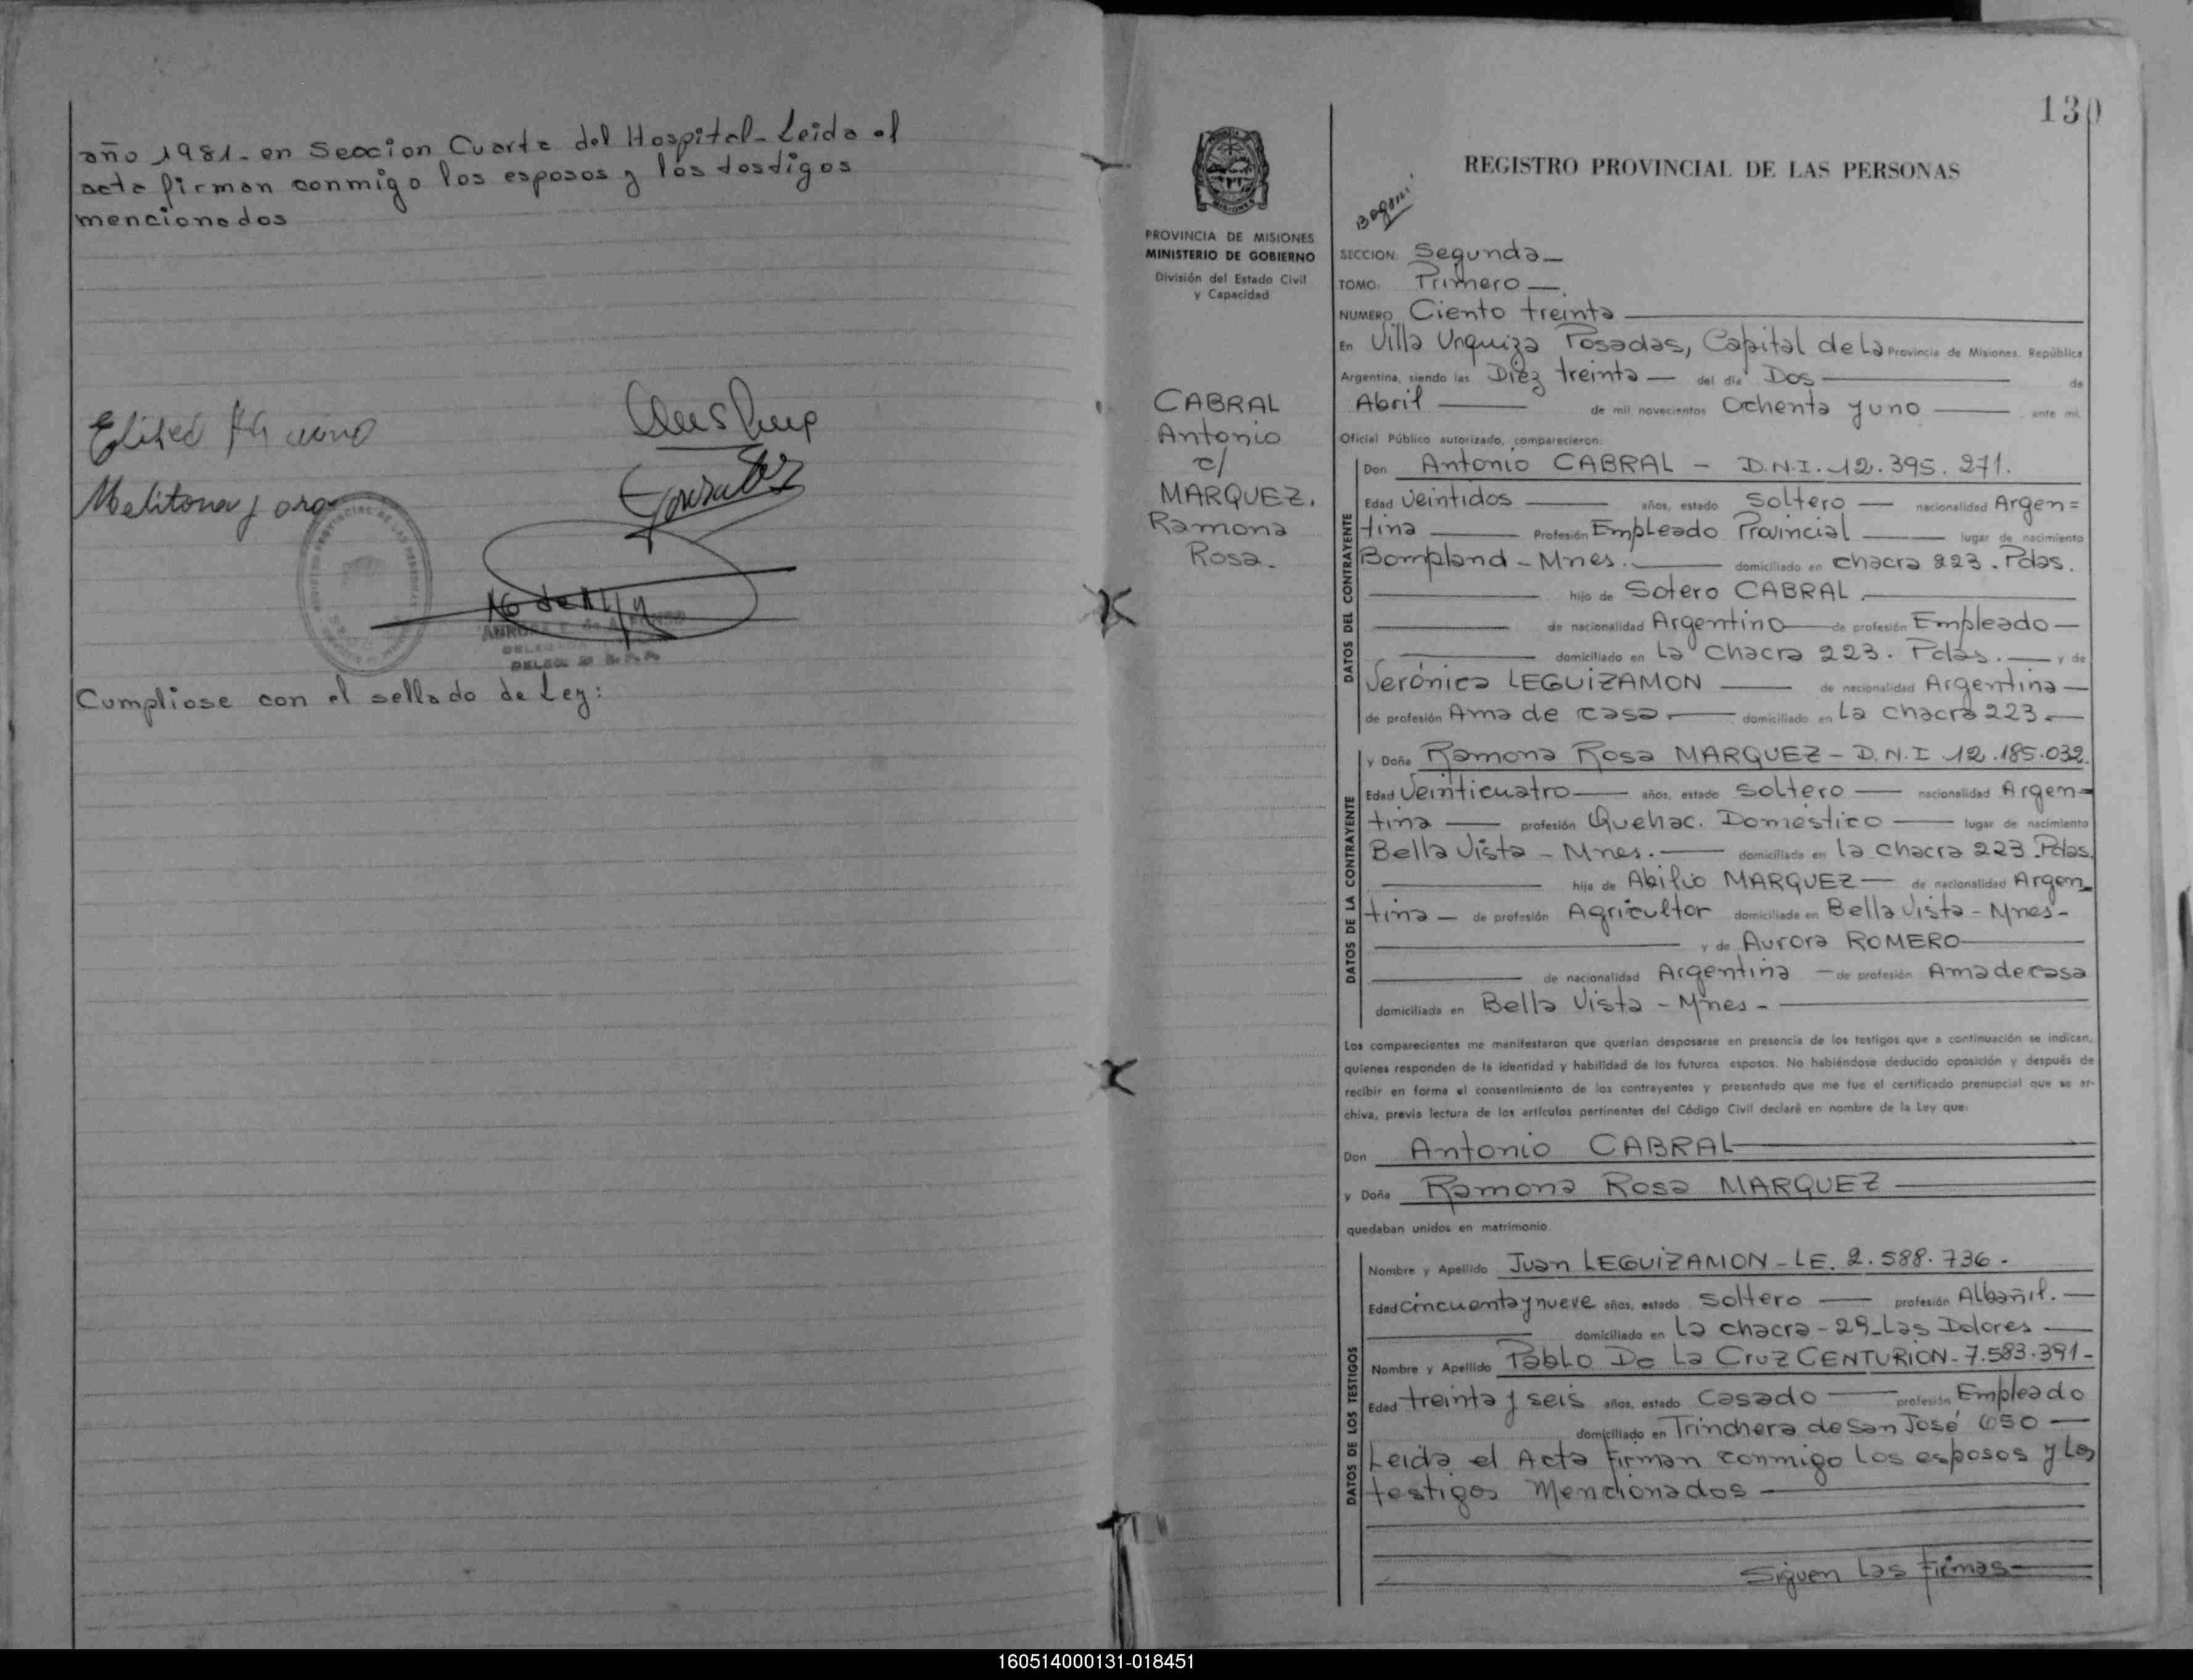 año 1981. en Seccion Cuarta del Hospital - Leida el
acta firman conmigo los esposos y los testigos
mencionados
Melitona
Cumpliose con el sellado de Ley:
130
REGISTRO PROVINCIAL DE LAS PERSONAS
MISIONES
PROVINCIA DE MISIONES
MINISTERIO DE GOBIERNO
División del Estado Civil
y Capacidad
CABRAL
Antonio
c/
MARQUEZ.
Ramona
Rosa.
SECCION: Segunda
TOMO: Primero
NUMERO Ciento treinta
En Villa Urquiza Posadas, Capital de La Provincia de Misiones. República
Argentina, siendo las Diez treinta del día Dos de
Abril de mil novecientos Ochenta y uno ante mí,
Oficial Público autorizado, comparecieron:
DATOS DEL CONTRAYENTE
Don Antonio CABRAL - D.N.I. 12.395.271.
Edad Veintidos años, estado Soltero nacionalidad Argen=
tina Profesión Empleado Provincial lugar de nacimiento
Bompland - Mnes. domiciliado en chacra 223. Pdas.
hijo de Sotero CABRAL
de nacionalidad Argentino de profesión Empleado
domiciliado en La Chacra 223. Pdas. y de
Verónica LEGUIZAMON de nacionalidad Argentina
de profesión Ama de casa domiciliado en La chacra 223
DATOS DE LA CONTRAYENTE
y Doña Ramona Rosa MARQUEZ - D.N.I 12.185.032.
Edad Veinticuatro años, estado Soltero nacionalidad Argen=
tina profesión Quehac. Doméstico lugar de nacimiento
Bella Vista - Mnes. domiciliada en la chacra 223. Pdas.
hija de Abilio MARQUEZ de nacionalidad Argen
tina de profesión Agricultor domiciliada en Bella Vista - Mnes -
y de Aurora ROMERO
de nacionalidad Argentina de profesión Ama de casa
domiciliada en Bella Vista - Mnes -
Los comparecientes me manifestaron que querían desposarse en presencia de los testigos que a continuación se indican,
quienes responden de la identidad y habilidad de los futuros esposos. No habiéndose deducido oposición y después de
recibir en forma el consentimiento de los contrayentes y presentado que me fue el certificado prenupcial que se ar-
chiva, previa lectura de los artículos pertinentes del Código Civil declaré en nombre de la Ley que:
Don Antonio CABRAL
y Doña Ramona Rosa MARQUEZ
quedaban unidos en matrimonio
DATOS DE LOS TESTIGOS
Nombre y Apellido Juan LEGUIZAMON - LE. 2.588.736 -
Edad cincuenta y nueve años, estado Soltero profesión Albañil.
domiciliado en La chacra - 29 - Las Dolores
Nombre y Apellido Pablo De La Cruz CENTURION - 7.583.391 -
Edad treinta y seis años, estado Casado profesión Empleado
domiciliado en Trinchera de San José 650
Leida el Acta Firman conmigo los esposos y Los
testigos Mencionados
Siguen Las Firmas
160514000131-018451